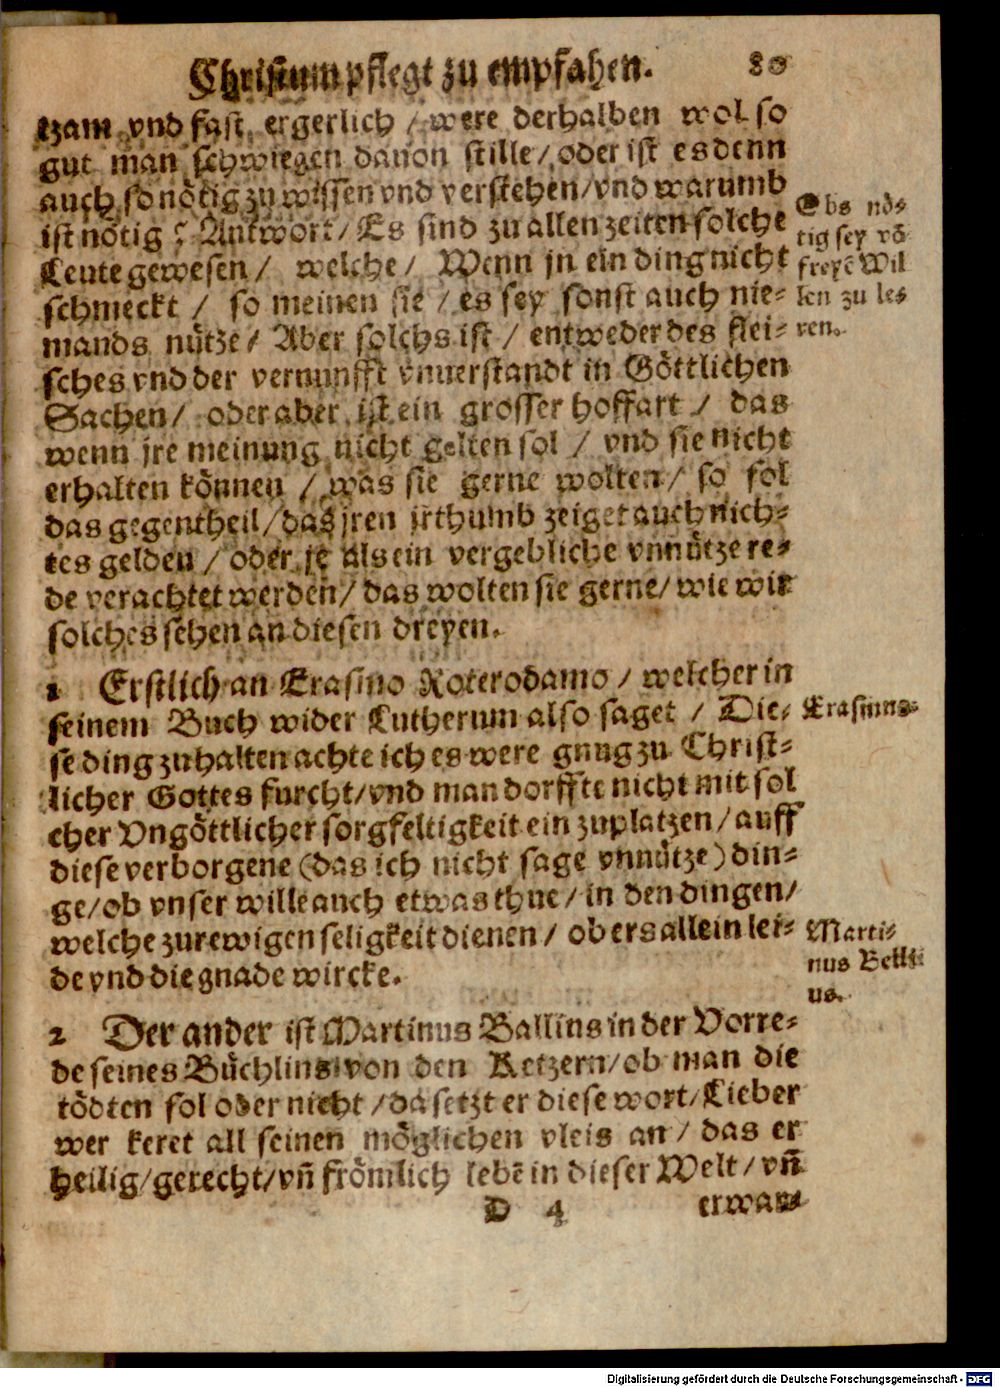 Christum pflegt zu empfahen. 80
tzam vnd fast ergerlich / were derhalben wol so
gut man schwiegen dauon stille / oder ist es denn
auch so nötig zu wissen vnd verstehen / vnd warumb
ist nötig? Antwort / Es sind zu allen zeiten solche
Leute gewesen / welche / Wenn jn ein ding nicht
schmeckt / so meinen sie / es sey sonst auch nie-
mands nütze / Aber solchs ist / entweder des flei-
sches vnd der vernunfft vnuerstandt in Göttlichen
Sachen / oder aber ist ein grosser hoffart / das
wenn jre meinung nicht gelten sol / vnd sie nicht
erhalten können / was sie gerne wolten / so sol
das gegentheil / das jren jrthumb zeiget auch nich-
tes gelden / oder je als ein vergebliche vnnütze re-
de verachtet werden / das wolten sie gerne / wie wir
solches sehen an diesen dreyen.
Obs nö-
tig sey võ
freyẽ Wil
len zu le-
ren.
1 Erstlich an Erasmo Roterodamo / welcher in
seinem Buch wider Lutherum also saget / Die-
se ding zuhalten achte ich es were gnug zu Christ-
licher Gottes furcht / vnd man dorffte nicht mit sol
cher Vngöttlicher sorgfeltigkeit ein zuplatzen / auff
diese verborgene (das ich nicht sage vnnütze) din-
ge / ob vnser wille auch etwas thue / in den dingen /
welche zur ewigen seligkeit dienen / ob ers allein lei-
de vnd die gnade wircke.
Erasmus.
2 Der ander ist Martinus Ballius in der Vorre-
de seines Büchlins von den Ketzern / ob man die
tödten sol oder nicht / da setzt er diese wort / Lieber
wer keret all seinen möglichen vleis an / das er
heilig / gerecht / vñ frömlich lebẽ in dieser Welt / vñ
Marti-
nus Belli
us.
D 4 erwar-
Digitalisierung gefördert durch die Deutsche Forschungsgemeinschaft - DFG